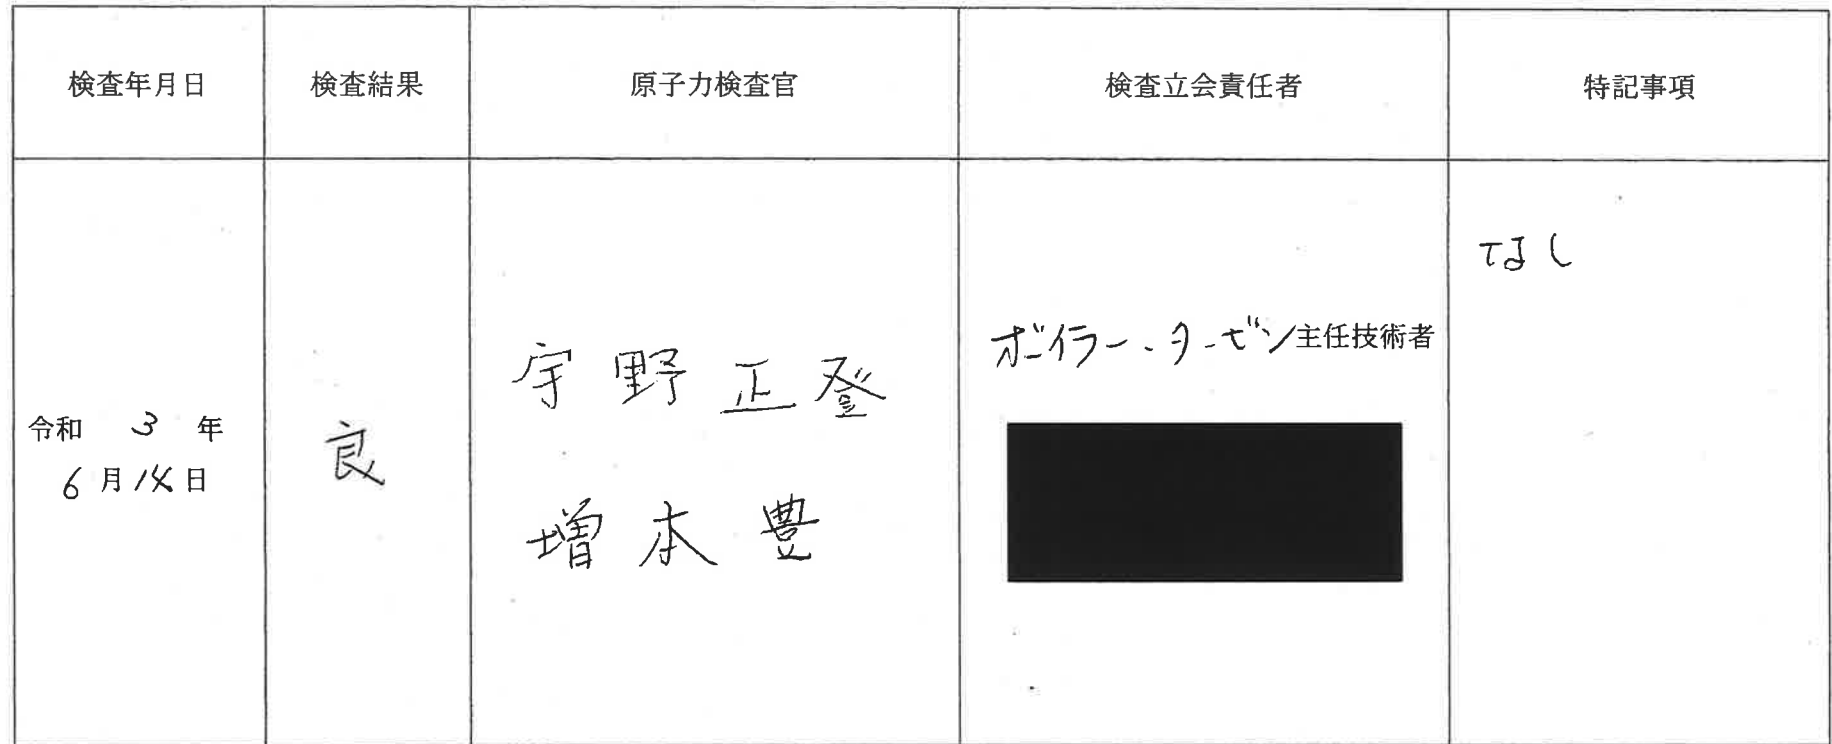 検査年月日
検査結果
原子力検査官
検査立会責任者
特記事項
令和 3 年
6月14日
良
宇野正登
増本豊
ボイラー・タービン主任技術者
なし